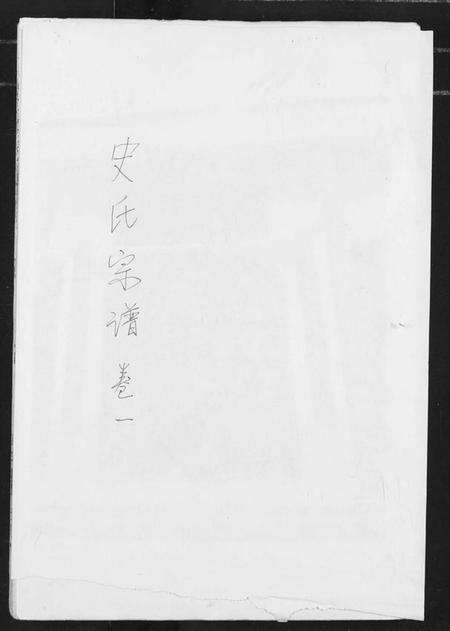 史氏宗谱 卷一